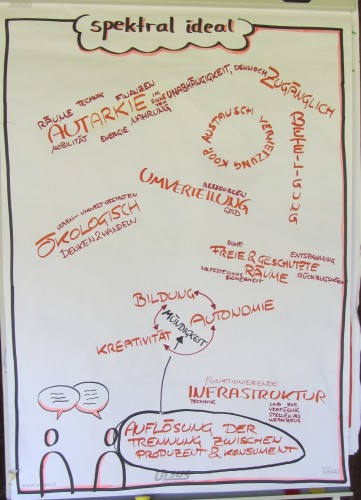 spektral ideal
RÄUME TECHNIK FINANZEN
AUTARKIE IM SINNE UNABHÄNGIGKEIT, DENNOCH ZUGÄNGLICH
MOBILITÄT ENERGIE NAHRUNG
AUSTAUSCH VERNETZUNG KOOP.
BETEILIGUNG
UMVERTEILUNG
RESSOURCEN
GELD
LEBEN - UMWELT GESTALTEN
ÖKOLOGISCH
DENKEN & HANDELN
RUHE
ENTSPANNUNG
FREIE & GESCHÜTZTE
RÄUME
RÜCKZUGSORT
SICHERHEIT
BILDUNG
AUTONOMIE
KREATIVITÄT
MÜNDIGKEIT
FUNKTIONIERENDE
INFRASTRUKTUR
TECHNIK
UND ZUR
VERFÜGUNG
STELLEN ALS
WERKZEUG
AUFLÖSUNG DER
TRENNUNG ZWISCHEN
PRODUZENT & KONSUMENT